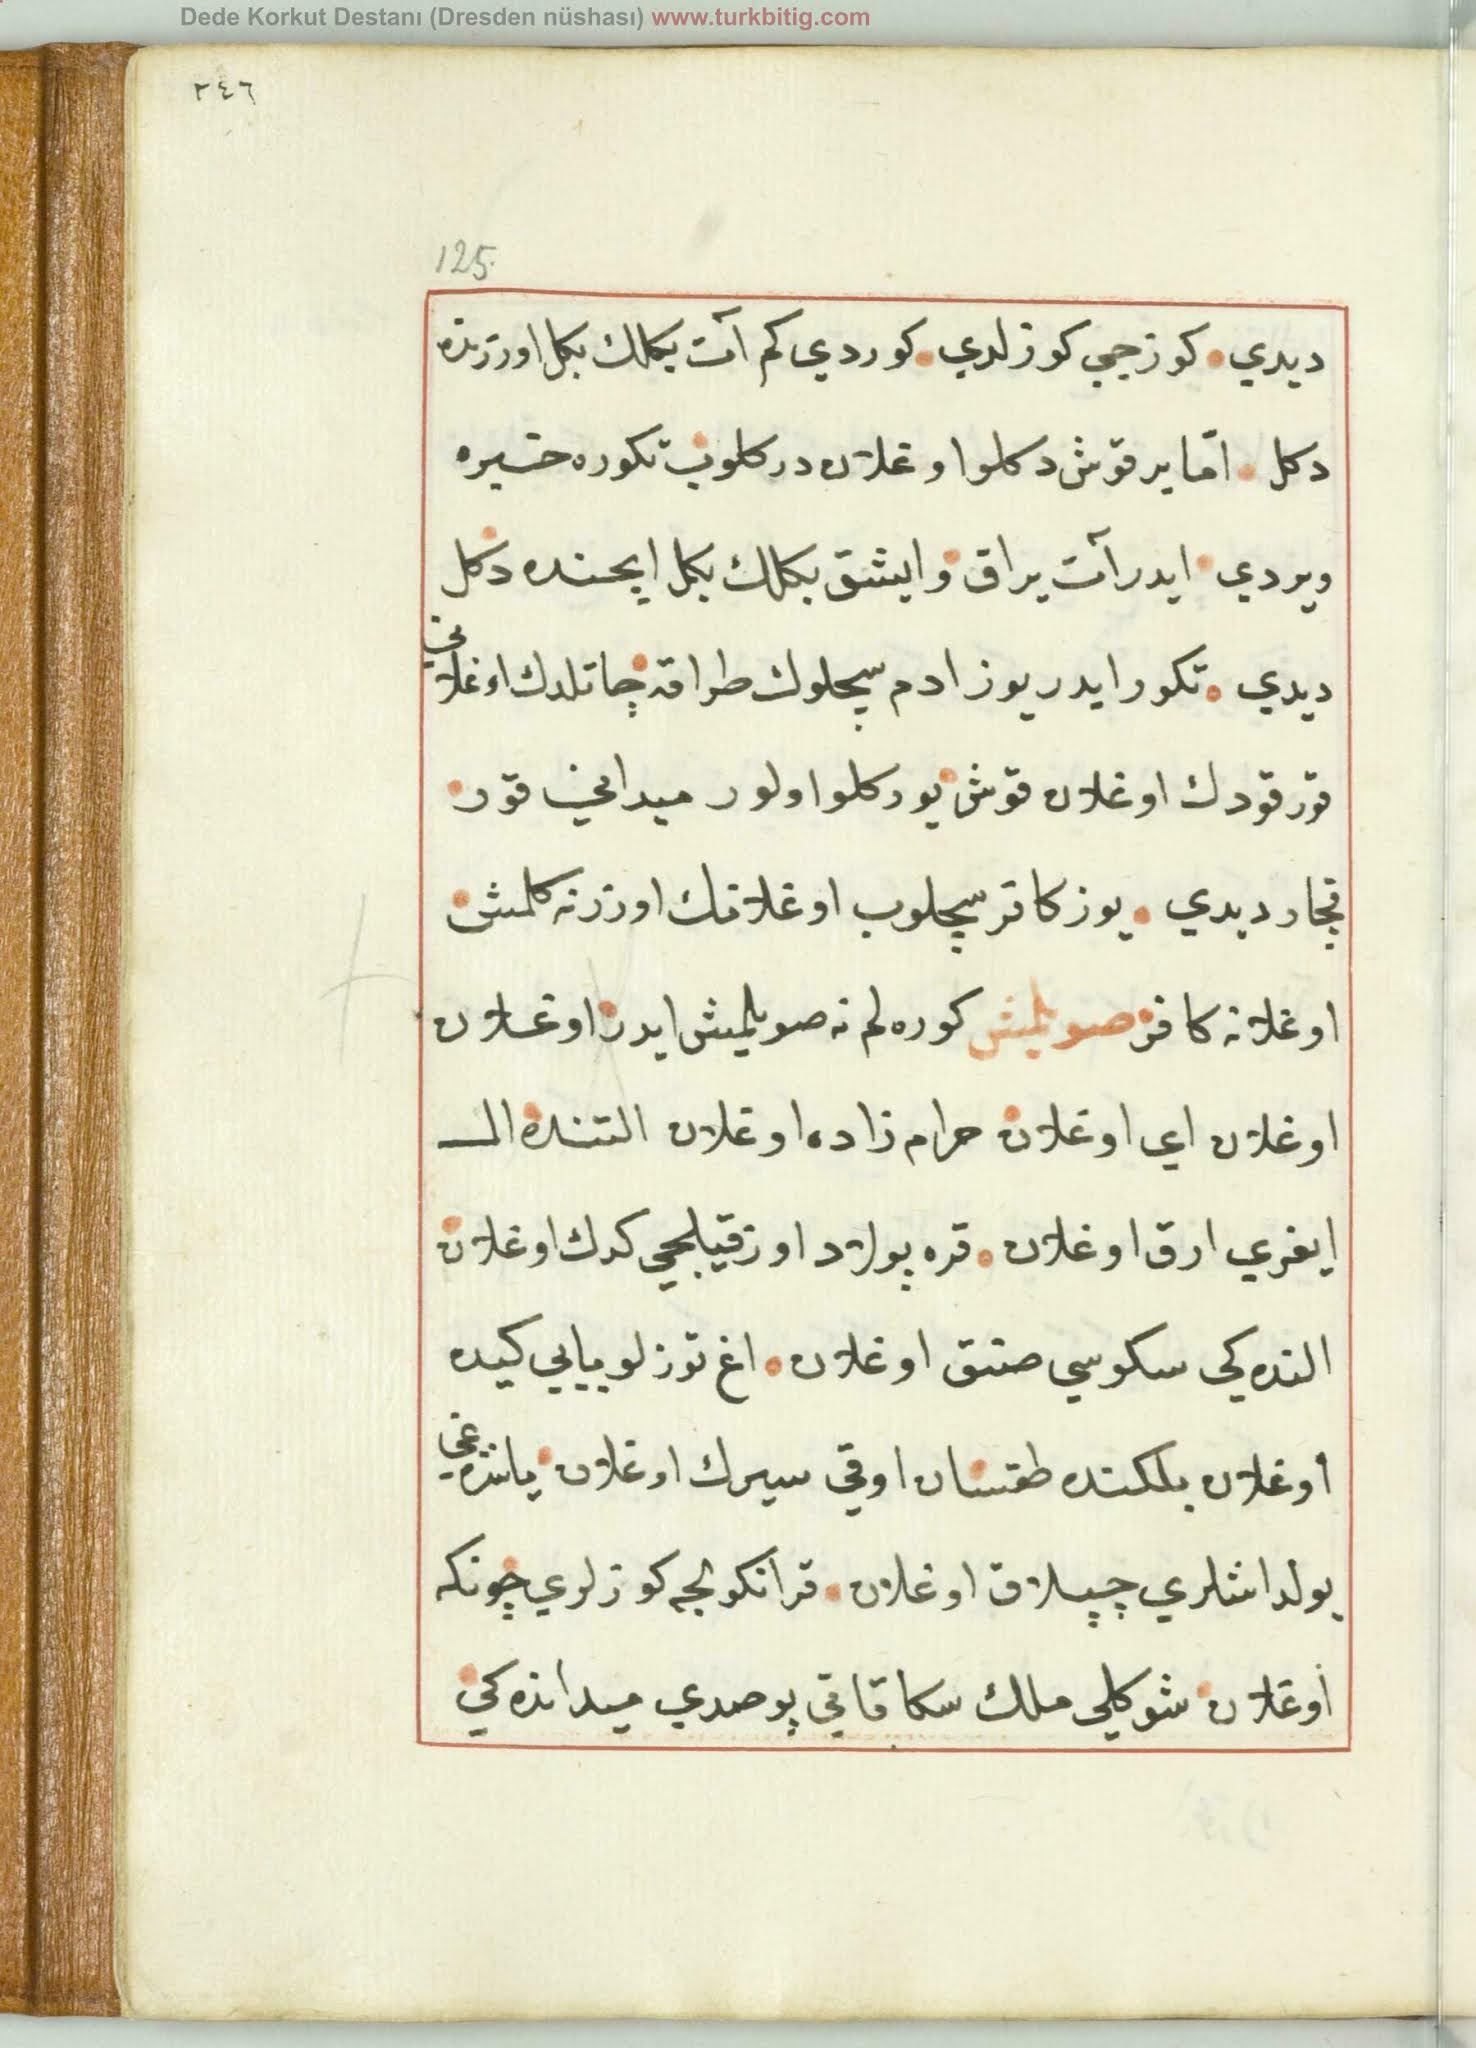 Dede Korkut Destanı (Dresden nüshası) www.turkbitig.com
٢٤٦
125.
ديدي • كوزجي كوزلدي • كوردي كم آت بكلك بكل اوزرنده
دكل • امّا بر قوش دكلوا وغلان در كلوب تكوره خبره
ويردي • ايدر آت يراق وايشق بكلك بكل ايچنده دكل
ديدي • تكور ايدر يوز ادم سچلوك طراقه چاتلدك اوغلاني
قورقودك اوغلان قوش يوركلو اولور ميداني قور
قچار ديدي • يوز كافر سچلوب اوغلانك اوزرنه كلمش
اوغلانه كافر صويلمش كوره لم نه صويلمش ايدر اوغلان
اوغلان اي اوغلان حرام زاده اوغلان التنده الـ
ايغري ارق اوغلان • قره پولاد اوز قيلجي كدك اوغلان
النده كي سكوسي صنق اوغلان • اغ توزلو يايي كيده
اوغلان بلكنده طقسان اوقي سيرك اوغلان ياننده غي
يولداشلري چپلاق اوغلان • قرانكولجه كوزلري چونكه
اوغلان شوكلي ملك سكا قاتي پوصدي ميدانده كي